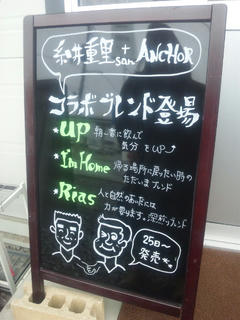 糸井重里 + ANCHOR
san
コラボブレンド登場
*up 朝一番に飲んで
気分をUP⤴
*I'm Home 帰る場所に戻ったい時の
ただいまブレンド
*Rias 人と自然のあいだには
力が宿ります。深煎りブレンド
25日〜
発売